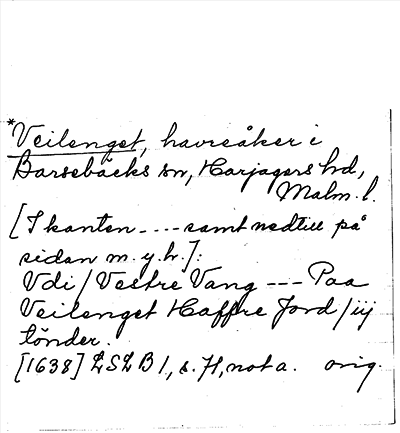 *Veilenget, havreåker i
Barsebäcks sn, Harjagers hd,
Malm. l.
[I kanten ---- samt nedtill på
sidan m. y. h.]:
Vdi / Vestre Vang --- Paa
Veilenget Haffre Jord / iij
tönder.
[1638] LSLB 1, s. 71, not a. orig.